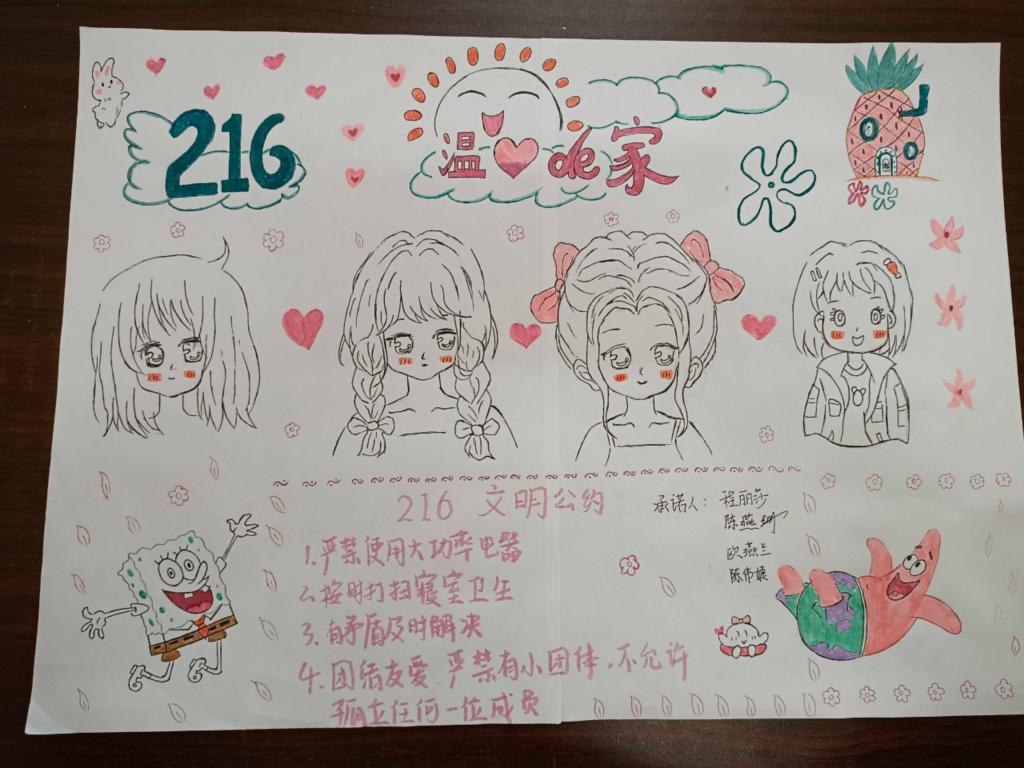 216
温 de家
216 文明公约
1.严禁使用大功率电器
2.按时打扫寝室卫生
3.有矛盾及时解决
4.团结友爱.严禁有小团体,不允许
孤立任何一位成员
承诺人: 程丽莎
陈燕珊
欧燕兰
陈伟